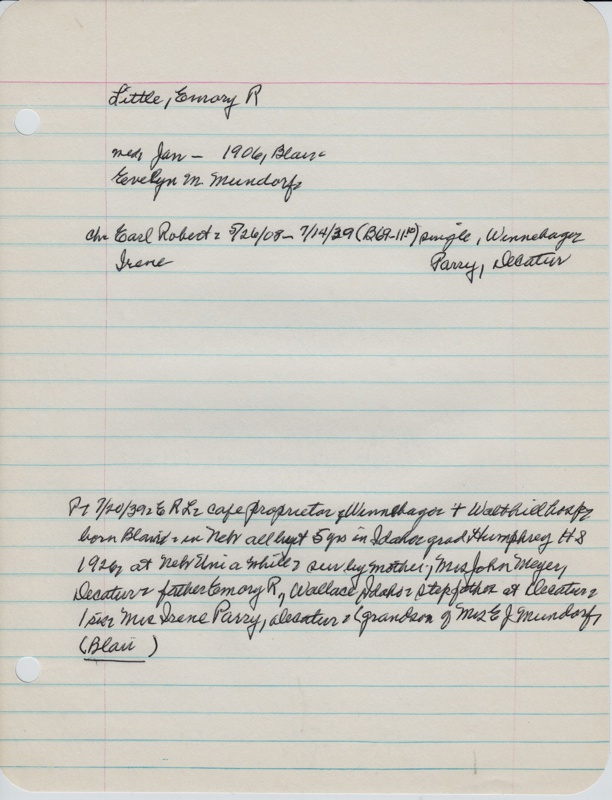 Little, Emory R
med, Jan - 1906, Blair
Evelyn M Mundorf,
ch Earl Robert: 5/26/08 - 7/14/39 (B69-11-) single, Winnebago
Irene Parry, Decatur
P- 7/20/39: E R L: cafe proprietor, Winnebago + Walthill hosp,
born Blair: in Nebr all but 5 yrs in Idaho: grad Humphrey H S
1926, at Nebr Uni a while: sur by mother, Mrs John Meyer,
Decatur: father Emory R, Wallace, Idaho: stepfather at Decatur:
1 sis: Mrs Irene Parry, Decatur: (grandson of Mrs E J Mundorf,
(Blair)